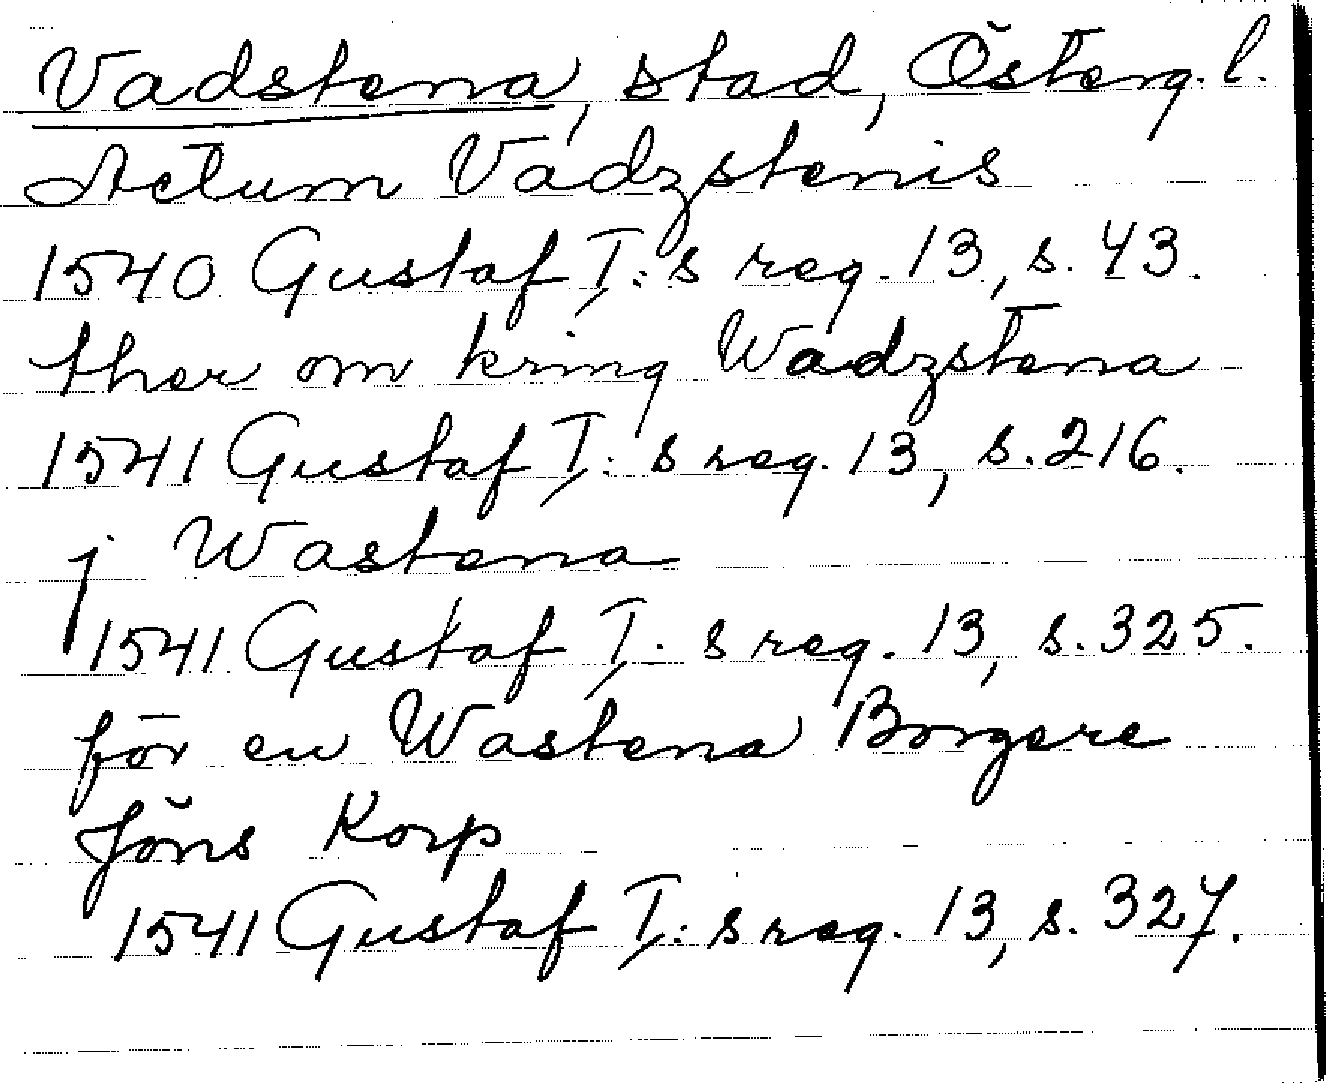 Vadstena, stad, Österg. l.
Actum Vadzstenis
1540 Gustaf I:s reg. 13, s. 43.
ther om kring Wadzstena
1541 Gustaf I:s reg. 13, s. 216.
j Wastena
1541 Gustaf I:s reg. 13, s. 325.
för en Wastena Borgere
Jöns Korp
1541 Gustaf I:s reg. 13, s. 327.